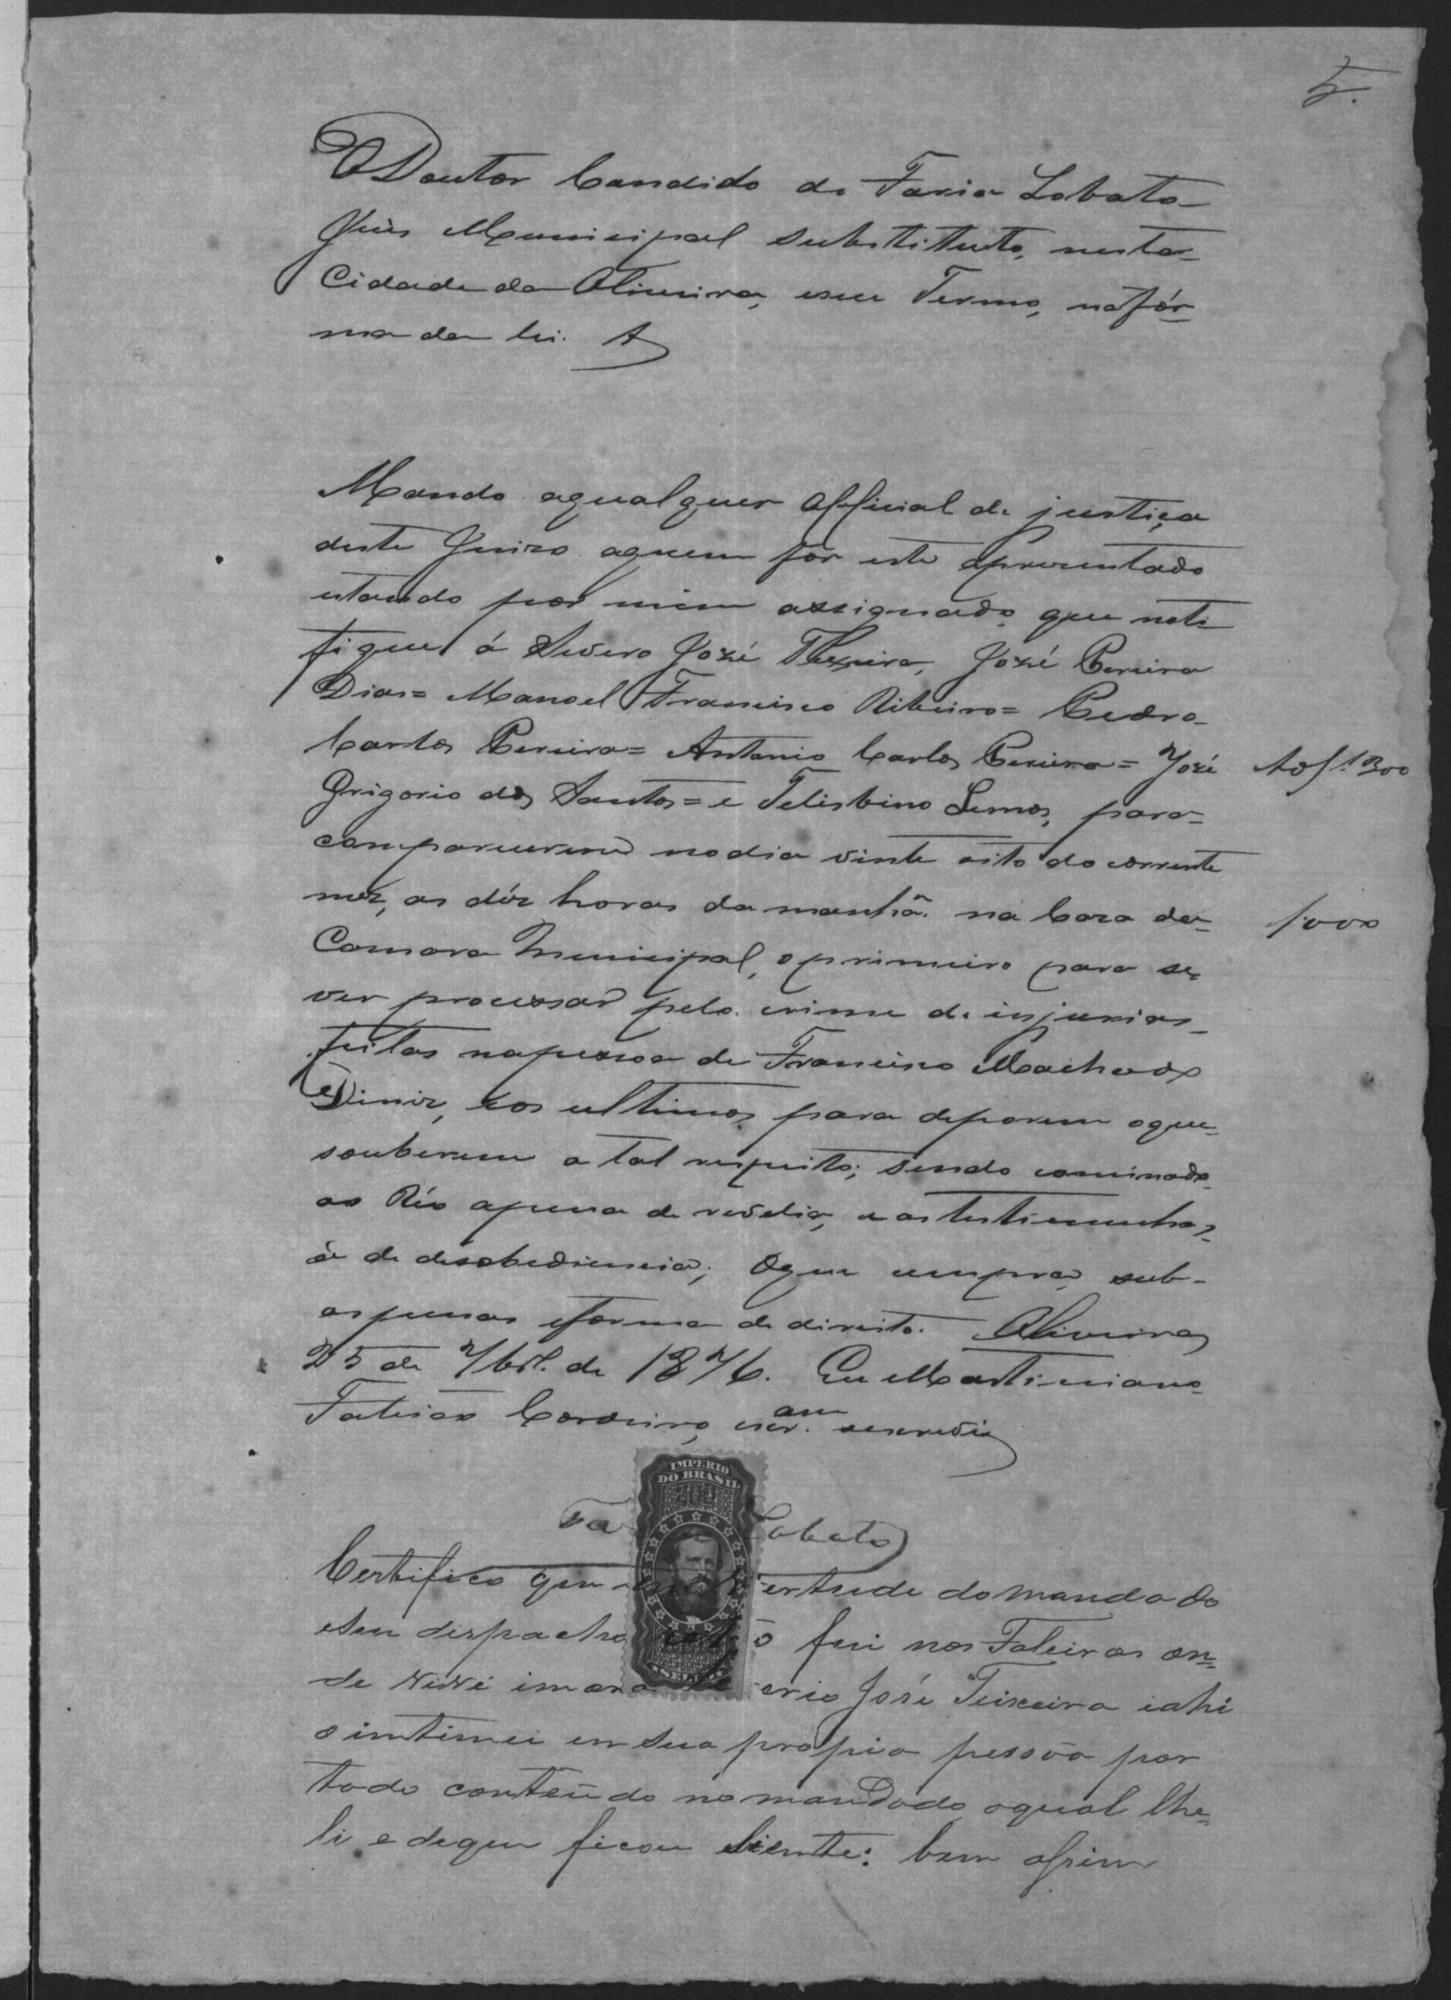 5.
O Doutor Candido de Faria Lobato
Juis Municipal substituto, nesta
Cidade da Oliveira, eseu Termo, nafór-
ma da lei. A
Mando aqualquer Official de justiça
deste Juizo aquem fôr este apresentado
estando por mim assignado, que noti
fique á Severo José Teixeira, José Pereira
Dias= Manoel Francisco Ribeiro= Pedro
Carlos Pereira= Antonio Carlos Pereira= José
300
Grigorio dos Santos= e Felisbino Lemos, para
comparecerem nodia vinte oito do corrente
mez, as déz horas da manhã, na Caza da
1000
Camara Municipal, oprimeiro para se
ver processar pelo crime de injurias
feitas napessoa de Francisco Machado
Diniz, eos ultimos para deporem oque
souberem a tal respeito; sendo cominado
ao Réo apena de revelia, e as testimunhas
á de desobediencia; Oque cumpra, sub-
aspenas eforma de direito. Oliveira
25 de 7br.º de 1876. Eu Martiniano
Cordeiro, escr.am escrevi
IMPERIO
DO BRASIL
Lobato
Certifico que em vertude do mandado
eseu dispacho fui nos Faleiros on-
de vive imora José Teixeira eahi
o intimei em sua propia pessôa por
todo conteúdo no mandado oqual lhe
li e deque ficou siente: bem assim